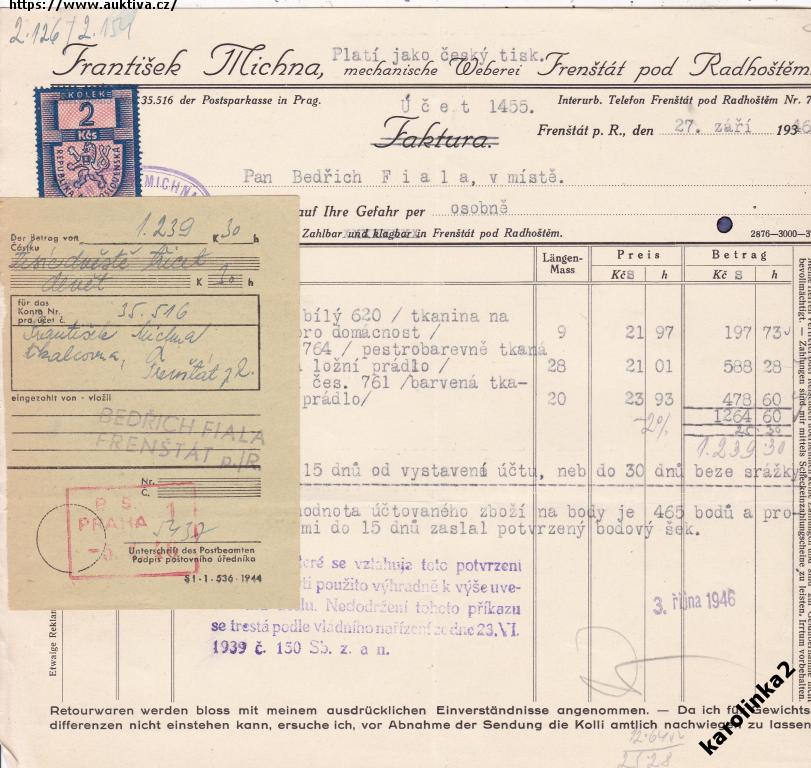 https://www.auktiva.cz/
2.126/2.154
Platí jako český tisk.
František Michna, mechanische Weberei Frenštát pod Radhoštěm
35.516 der Postsparkasse in Prag.
Interurb. Telefon Frenštát pod Radhoštěm Nr. 7
KOLEK
2
Kčs
Účet 1455.
Faktura.
Frenštát p. R., den 27. září 1946
MICHNA
Pan Bedřich Fiala, v místě.
auf Ihre Gefahr per osobně
Zahlbar und klagbar in Frenštát pod Radhoštěm.
2876—3000—3
Längen-Mass
Preis
Betrag
Kčs h
Kčs h
bílý 620 / tkanina na
pro domácnost / 9 21 97 197 73
764 / pestrobarevně tkaná
ložní prádlo / 28 21 01 588 28
čes. 761 /barvená tka-
prádlo/ 20 23 93 478 60
1264 60
-2% 25 30
1.239 30
15 dnů od vystavené účtu, neb do 30 dnů beze srážky
hodnota účtovaného zboží na body je 465 bodů a pro-
mi do 15 dnů zaslal potvrzený bodový šek.
které se vztahuje toto potvrzení
použito výhradně k výše uve-
Nedodržení tohoto příkazu
se trestá podle vládního nařízení ze dne 23. VI.
1939 č. 150 Sb. z. a n.
3. října 1946
Der Betrag von
Částku
1.239 K 30 h
Tisícdvěstě třicet
devět K 30 h
für das
Konto Nr.
pro účet č.
35.516
František Michna
tkalcovna,
Frenštát p. R.
eingezahlt von - vložil
BEDŘICH FIALA
FRENŠTÁT p./R.
Nr.
Č.
P. S.
PRAHA 1
Unterschrift des Postbeamten
Podpis poštovního úředníka
S 1 - 1 - 536 - 1944
Etwaige Reklam
Retourwaren werden bloss mit meinem ausdrücklichen Einverständnisse angenommen. — Da ich für Gewichts
differenzen nicht einstehen kann, ersuche ich, vor Abnahme der Sendung die Kolli amtlich nachwiegen zu lassen
2528
karolinka2